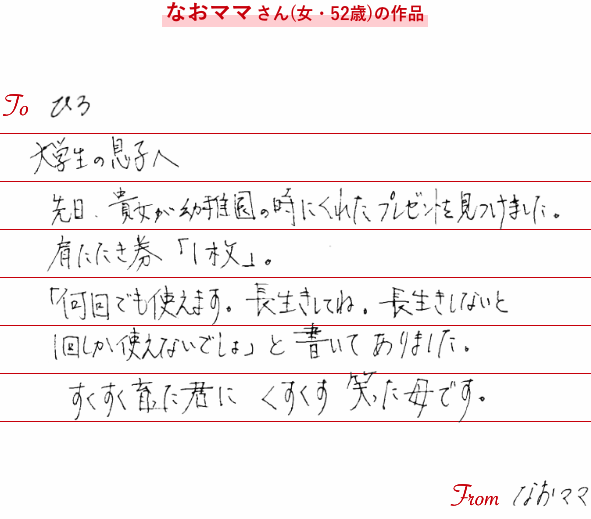 なおママさん(女・52歳)の作品
To ひろ
大学生の息子へ
先日、貴女が幼稚園の時にくれたプレゼントを見つけました。
肩たたき券「1枚」。
「何回でも使えます。長生きしてね。長生きしないと
1回しか使えないでしょ」と書いてありました。
すくすく育った君に くすくす笑った母です。
From なおママ